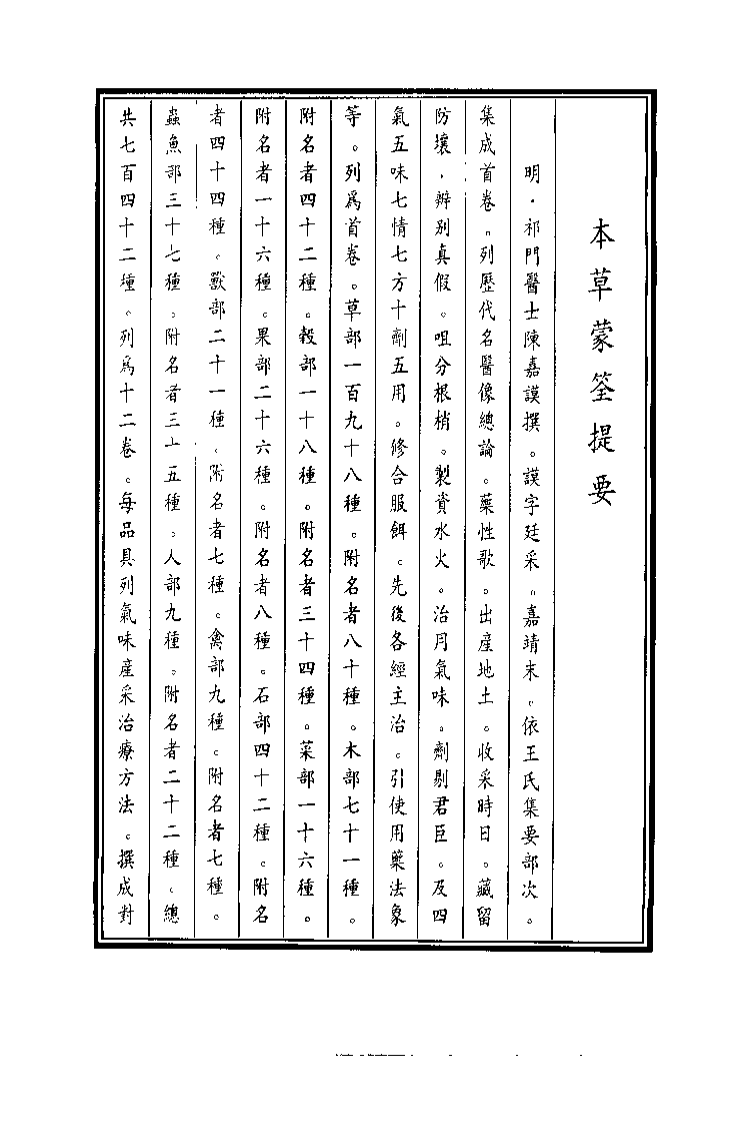 本草蒙筌提要
明．祁門醫士陳嘉謨撰。謨字廷采。嘉靖末。依王氏集要部次。
集成首卷。列歷代名醫像總論。藥性歌。出產地土。收采時日。藏留
防壞．辨別真假。咀分根梢。製資水火。治用氣味。劑剔君臣。及四
氣五味七情七方十劑五用。修合服餌。先後各經主治。引使用藥法象
等。列爲首卷。草部一百九十八種。附名者八十種。木部七十一種。
附名者四十二種。穀部一十八種。附名者三十四種。菜部一十六種。
附名者一十六種。果部二十六種。附名者八種。石部四十二種。附名
者四十四種。獸部二十一種、附名者七種。禽部九種。附名者七種。
蟲魚部三十七種。附名者三十五種。人部九種。附名者二十二種、總
共七百四十二種。列爲十二卷。每品具列氣味產采治療方法。撰成對